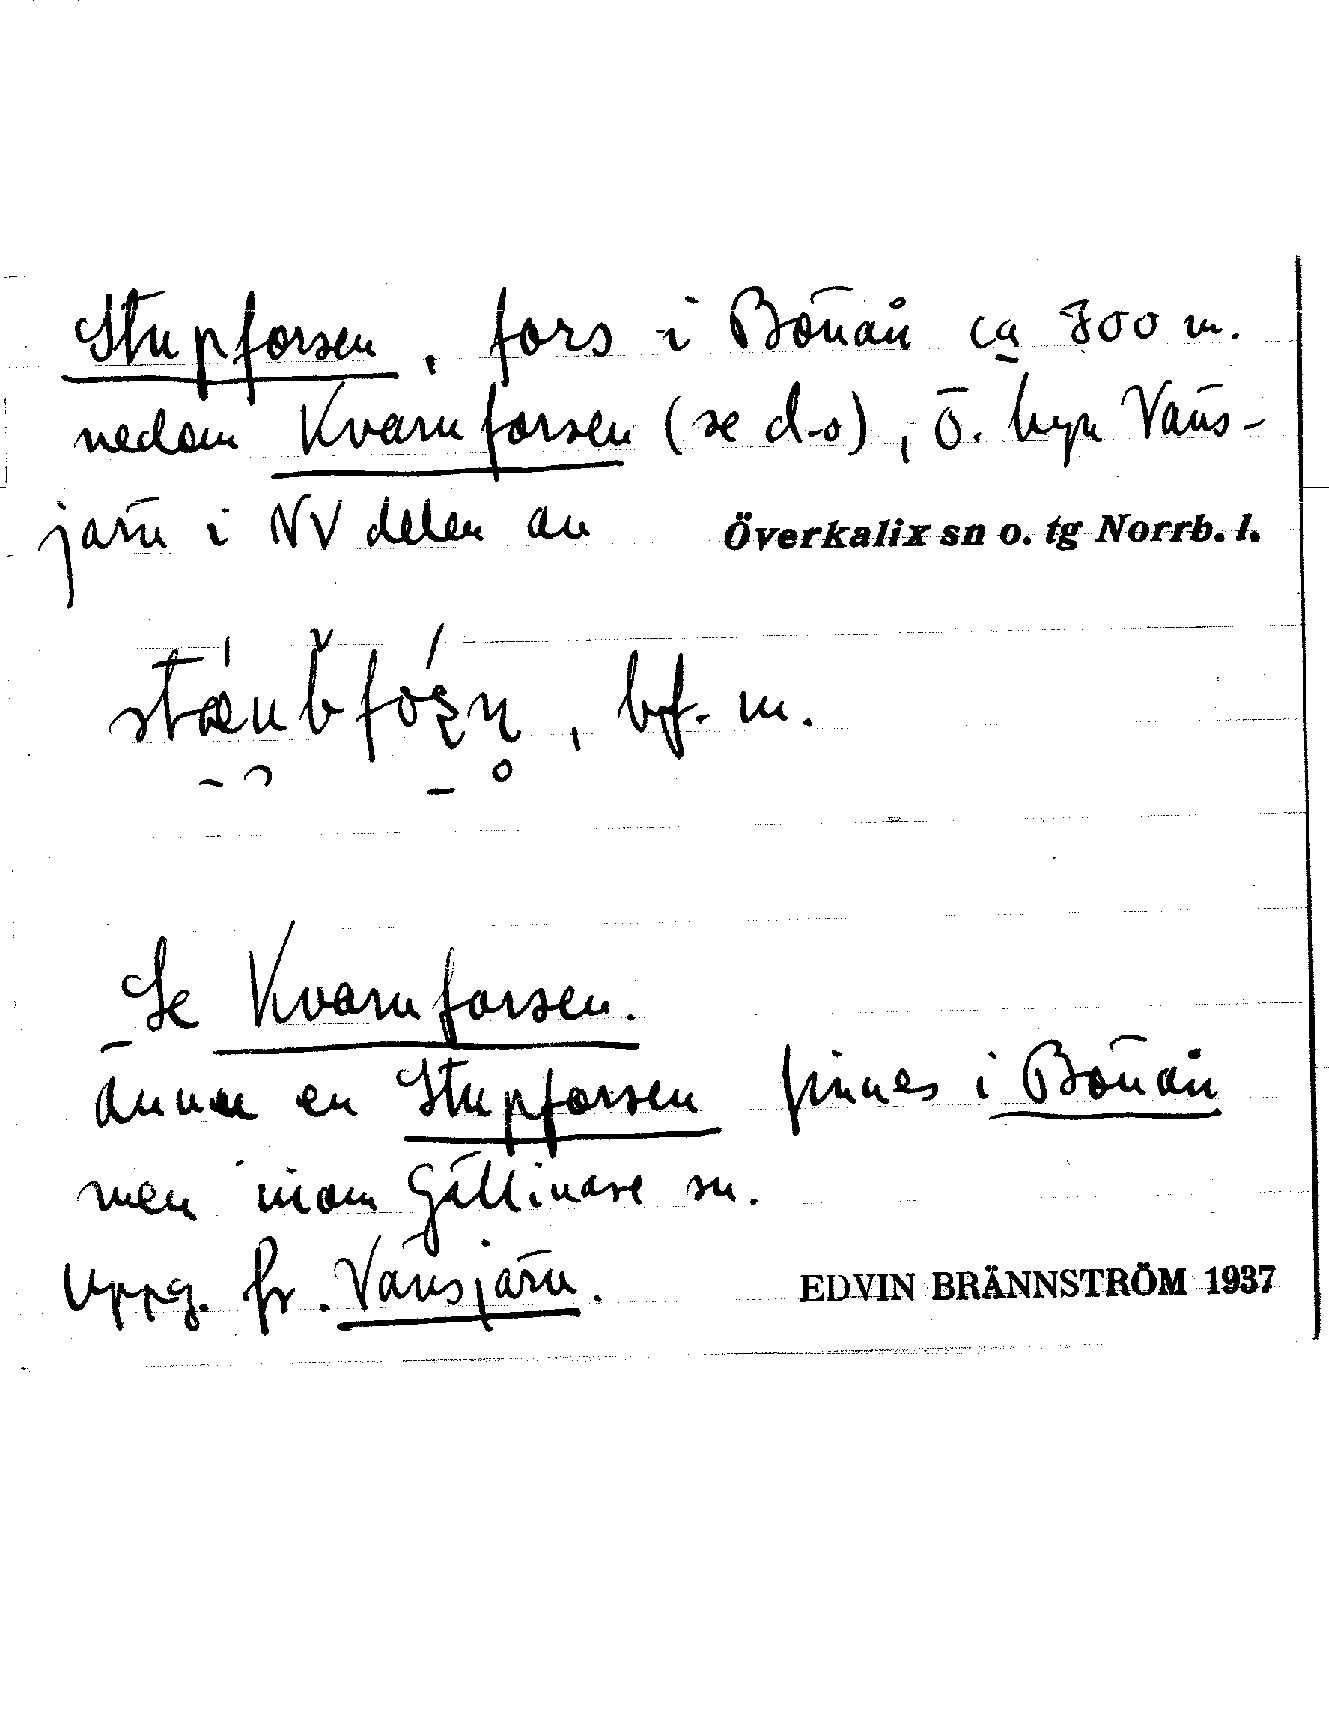 Stupforsen, fors i Bönån ca 700 m.
nedom Kvarnforsen (se d-o), Ö. byn Väns-
järn i NV delen av Överkalix sn o. tg Norrb. l.
bf. m.
Se Kvarnforsen.
Ännu en Stupforsen finnes i Bönån
men inom Gällivare sn.
Uppg. fr. Vänsjärn. EDVIN BRÄNNSTRÖM 1937